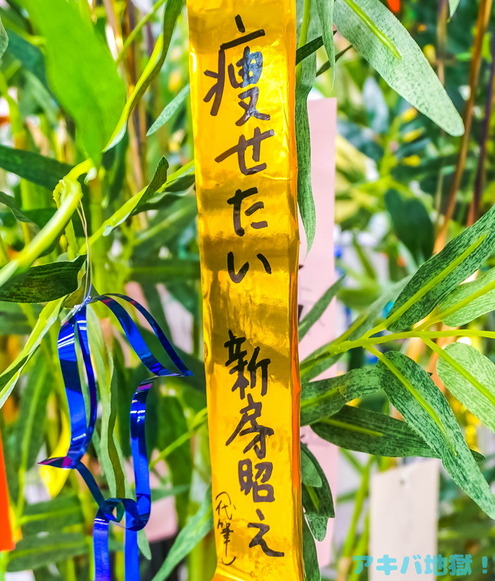 痩せたい 新房昭之
(代筆)
アキバ地獄！